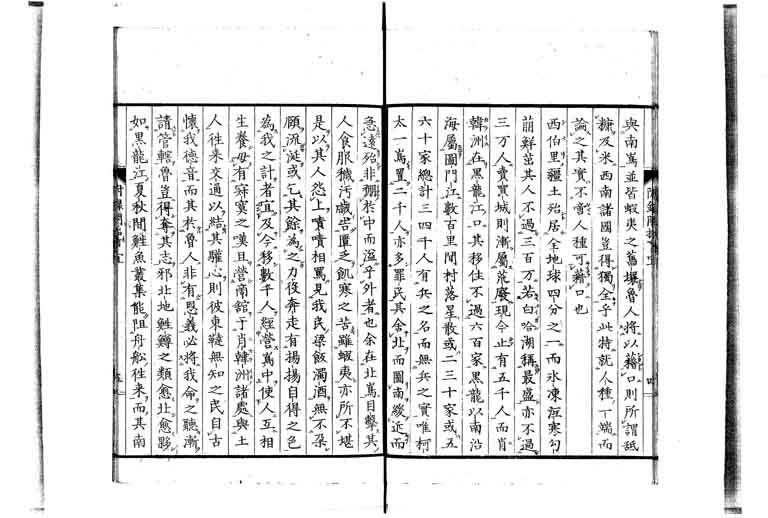 與南嶌並皆蝦夷之舊壤魯人將以藉口則所謂舐
糠及米西南諸國豈得獨全乎此特就人種一端而
論之其實不啻人種可藉口也
西伯里疆土殆居全地球四分之一而氷凍沍寒勾
萠鮮茁其人不過三百万若白哈湖稱最盛亦不過
三万人賣買城則漸屬荒廢現今止有五千人而肖
韓洲在黑龍江口其移住不過六百家黑龍以南沿
海屬圖門江數百里間村落星散或二三十家或五
六十家總計三四千人有兵之名而無兵之實唯柯
太一嶌置二千人亦多罪民其舍北而圖南緩近而
急遠殆非棚於中而溢乎外者也余在北嶌目擊其
人食服穢汚鹹告匱乏飢寒之苦雖蝦夷亦所不堪
是以其人怨上嘖嘖相罵見我民粱飯濁酒無不朶
頤流涎或乞其餘為之力役奔走有揚揚自得之色
為我之計者宜及今移數千人經營嶌中使人互相
生養毋有寂寞之嘆且營商舘于肖韓洲諸處與土
人徃来交通以結其驩心則彼東韃無知之民自古
懷我德音而其於魯人非有恩義必將我命之聽漸
請管轄魯豈得奪其志邪北地鮏鱒之類愈北愈夥
如黑龍江夏秋間鮏魚叢集能阻舟舩徃来而其南